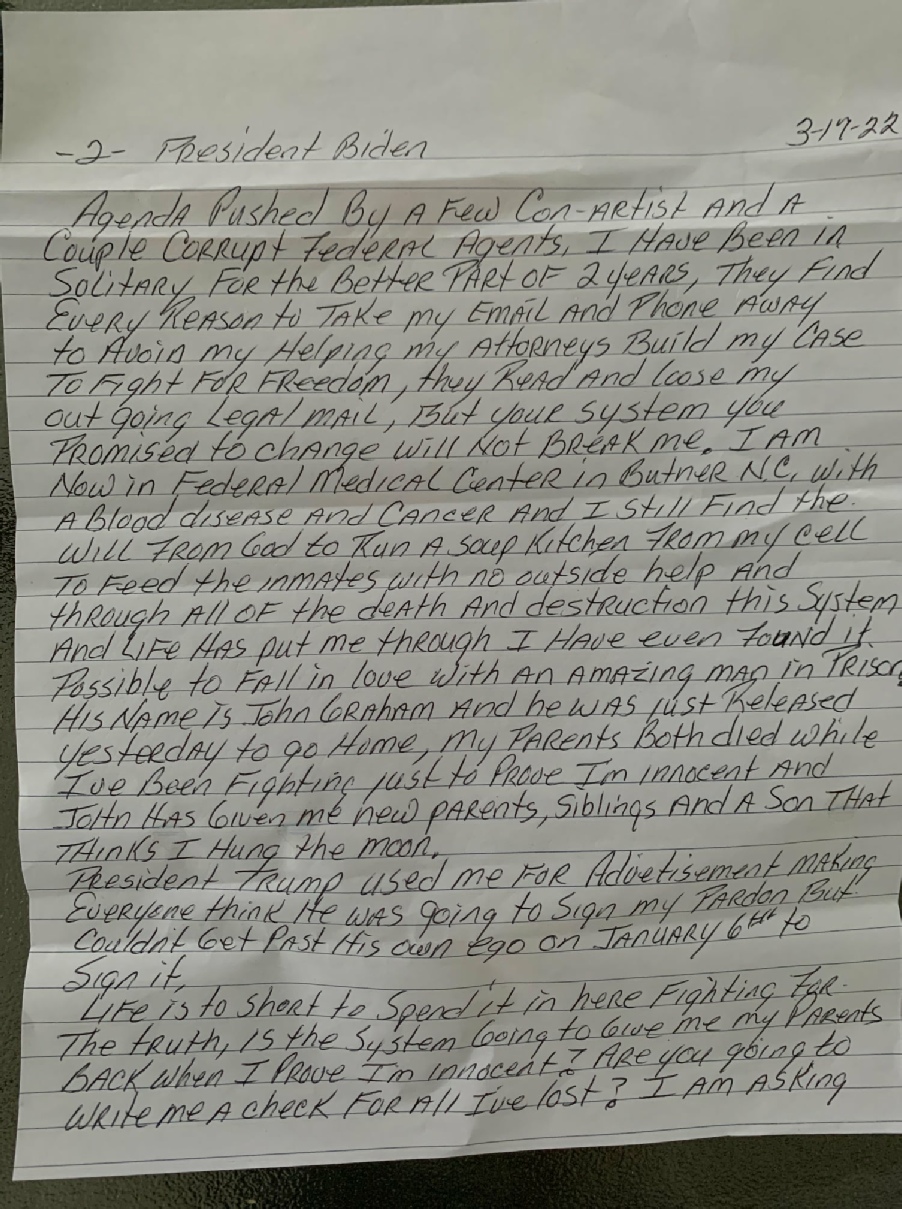 -2- President Biden 3-17-22
Agenda Pushed By A Few Con-Artist And A
Couple Corrupt Federal Agents, I Have Been in
Solitary For the Better Part OF 2 years, They Find
Every Reason to Take my Email And Phone Away
to Avoin my Helping my Attorneys Build my Case
To Fight For Freedom, they Read And loose my
out going Legal mail, But your system you
Promised to change will Not Break me. I Am
Now in Federal Medical Center in Butner N.C. with
A Blood disease And Cancer And I Still Find the
Will From God to Run A Soup Kitchen From my cell
To Feed the inmates with no outside help And
through All OF the death And destruction this System
And Life Has put me through I Have even Found it
Possible to Fall in love with An Amazing man in Prison
His Name is John Graham And he was just Released
yesterday to go Home, my Parents Both died while
I've Been Fighting just to Prove I'm innocent And
John Has Given me new parents, Siblings And A Son That
Thinks I Hung the moon.
President Trump used me For Advetisement making
Everyone think He was going to Sign my Pardon But
Couldn't Get Past His own ego on January 6th to
Sign it,
Life is to Short to Spend it in here Fighting For
The truth, Is the System Going to Give me my Parents
Back when I Prove I'm innocent? Are you going to
Write me A check For All I've lost? I Am Asking